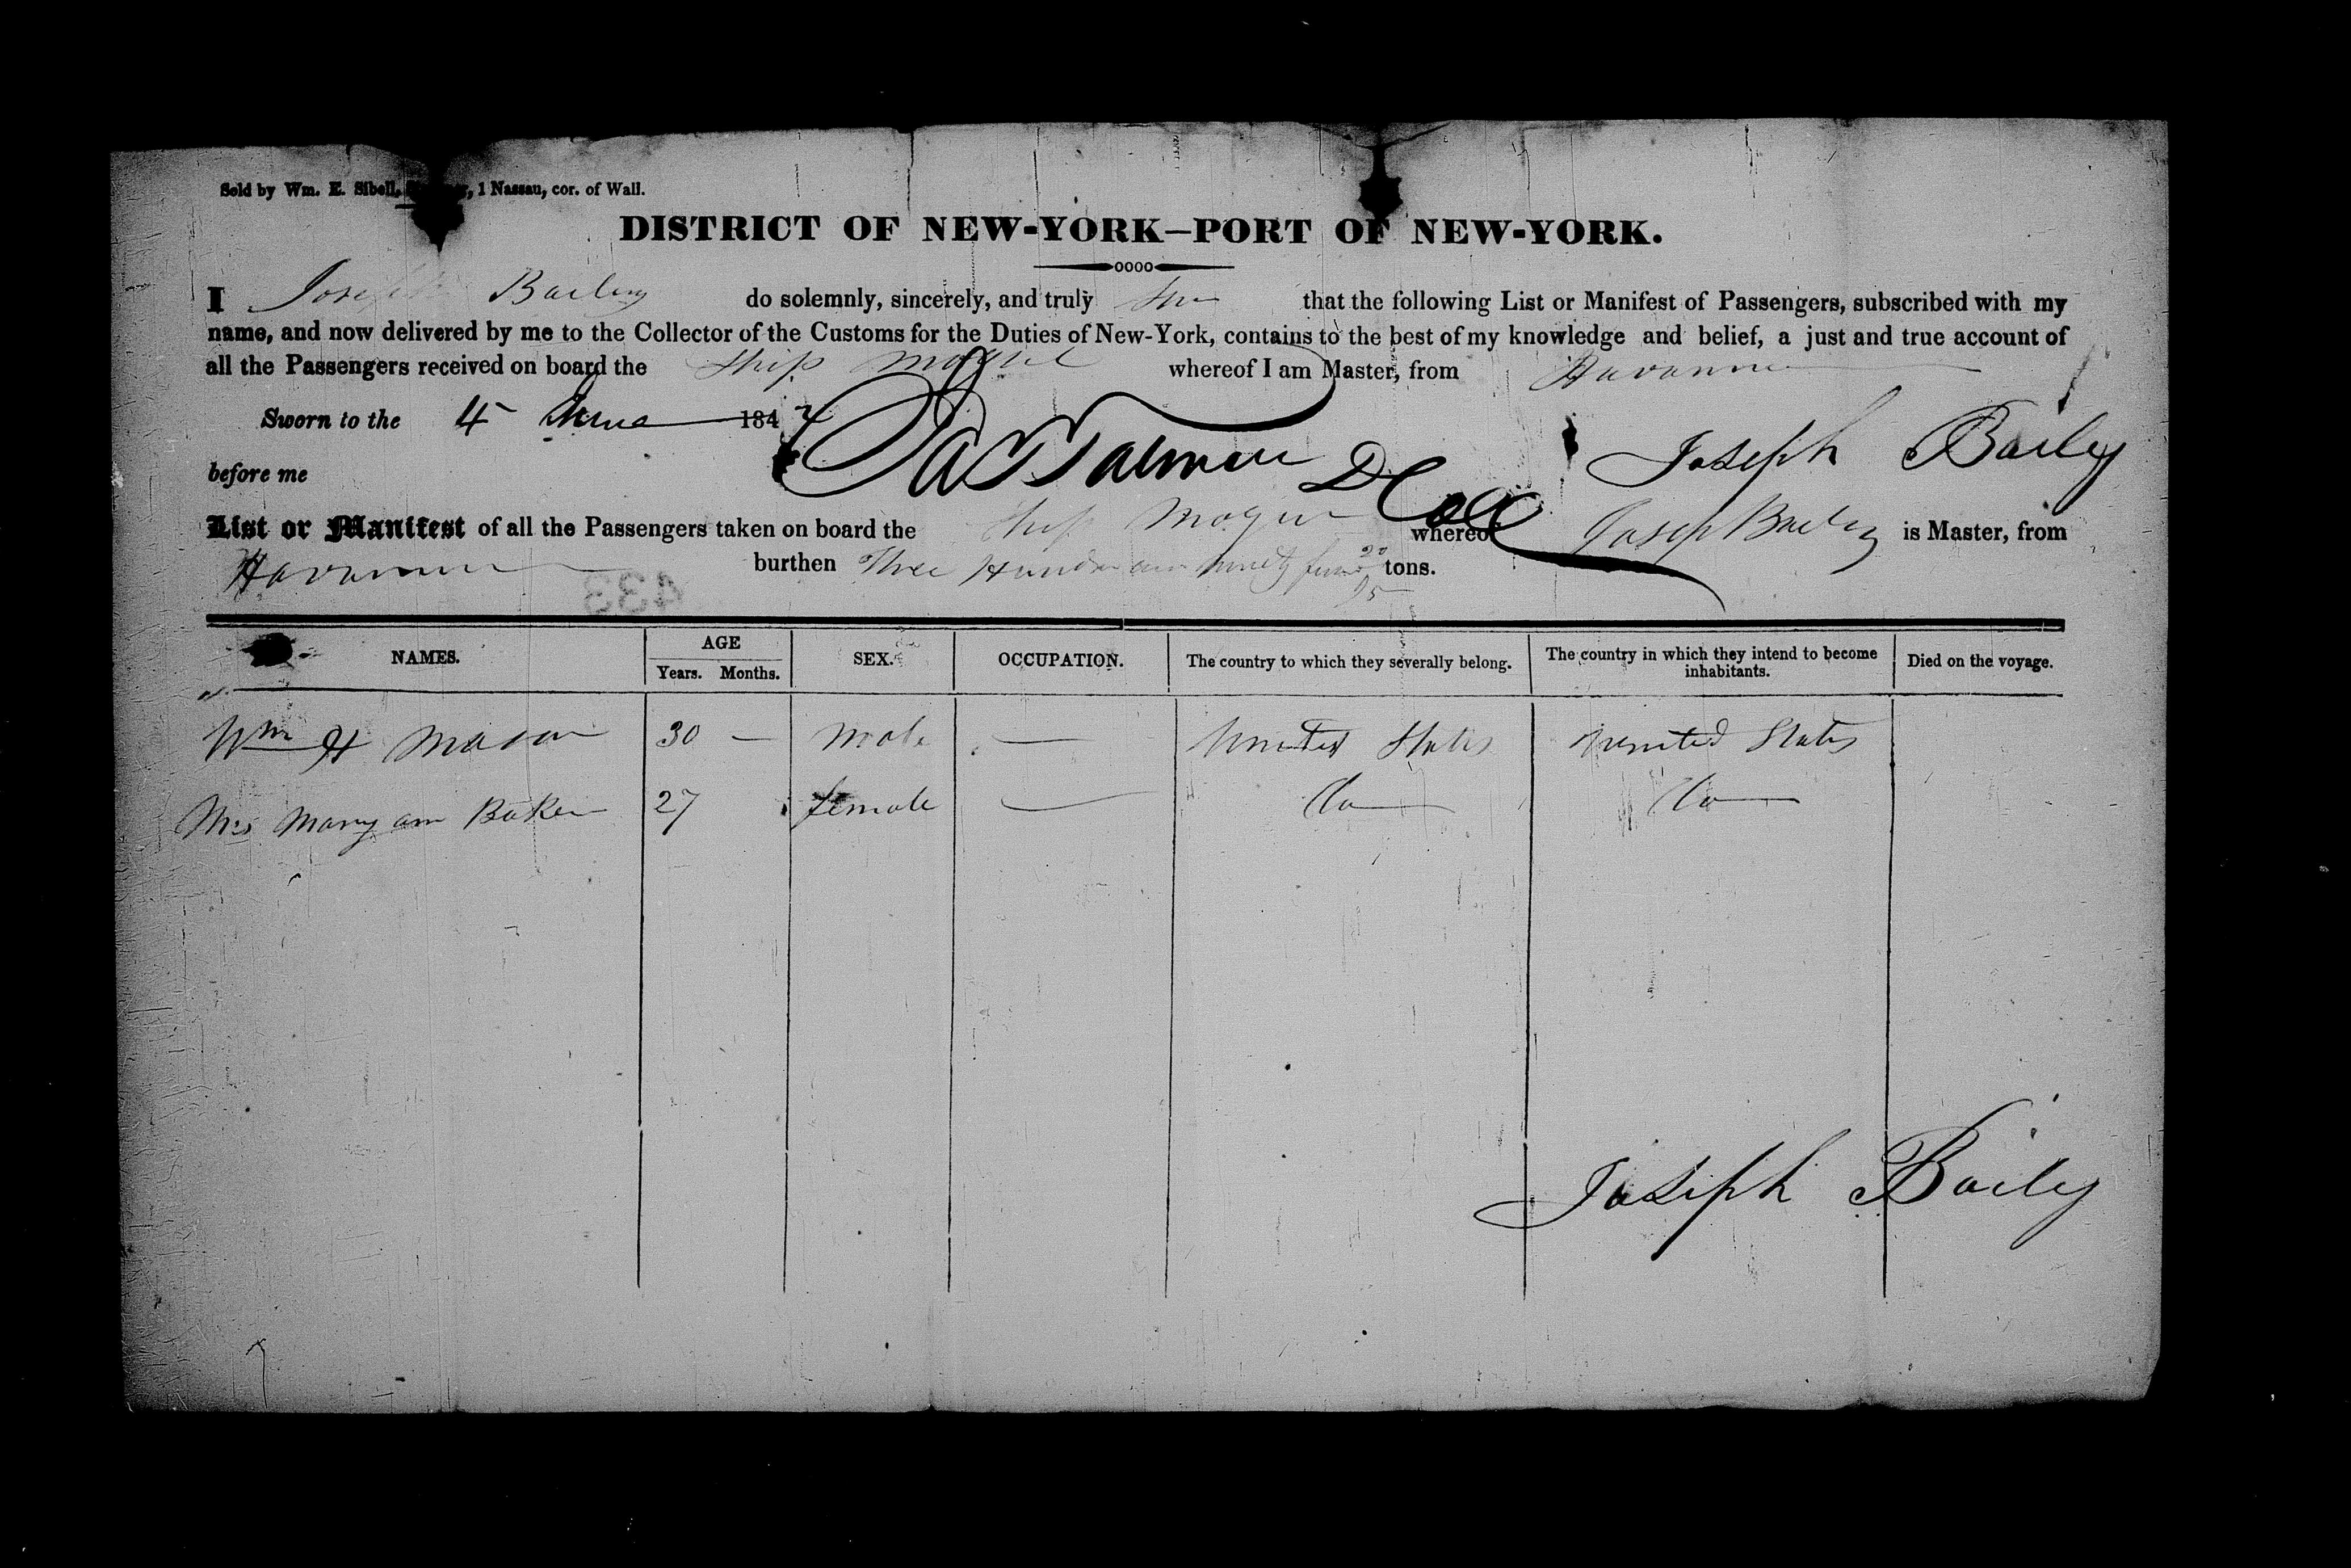 Sold by Wm. E. Sibell, 1 Nassau, cor. of Wall.
DISTRICT OF NEW-YORK—PORT OF NEW-YORK.
I Joseph Bailey do solemnly, sincerely, and truly that the following List or Manifest of Passengers, subscribed with my
name, and now delivered by me to the Collector of the Customs for the Duties of New-York, contains to the best of my knowledge and belief, a just and true account of
all the Passengers received on board the Ship Mogul whereof I am Master, from Havanna
Sworn to the 4 June 184
before me D Coll Joseph Baily
List or Manifest of all the Passengers taken on board the Ship Mogul whereof Joseph Bailey is Master, from
Havanna burthen Three Hundred and ninety four 20/95 tons.
433
NAMES. AGE SEX. OCCUPATION. The country to which they severally belong. The country in which they intend to become inhabitants. Died on the voyage.
Years. Months.
Wm H Mason 30 — male — United States United States
Mrs Mary ann Baker 27 female — Do — Do —
Joseph Baily